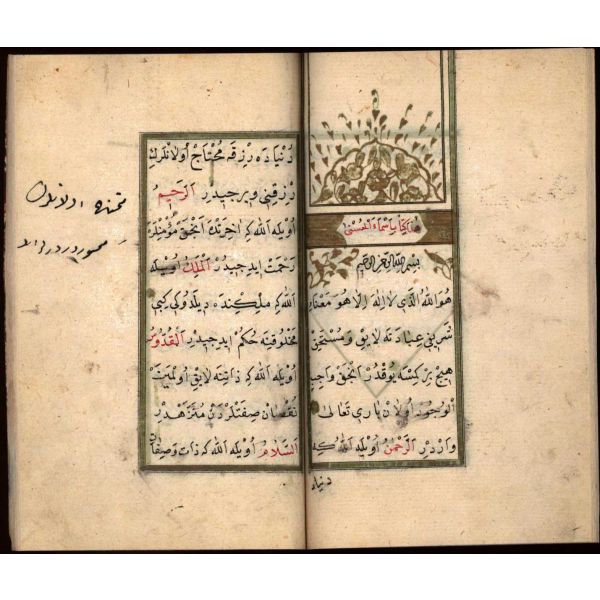 هذا كتاب اسماء الحسنى
بسم الله الرحمن الرحيم
هُوَ اللهُ الَّذِي لَا اِلٰهَ اِلَّا هُوَ مَعْنَاسِي
شَرِيفِي عِبَادَتَه لَايِقْ وَ مُسْتَحِقْ
هِيچْ بِرْ كِمْسَه يُوقْدُرْ اَنْجَقْ وَاجِبُ
الْوُجُودْ اُولَانْ بَارِي تَعَالٰى
وَارْدِرْ اَلرَّحْمٰنُ اُويْلَه اَللهْ كِه
دنياده
دُنْيَادَه رِزْقَه مُحْتَاجْ اُولَانْلَرِكْ
رِزْقِنِي وِيرِجِيدِرْ اَلرَّحِيمُ
اُويْلَه اَللهْ كِه اٰخِرَتْدَه اَنْجَقْ مُؤْمِنْلَرَه
رَحْمَتْ اِيدِجِيدِرْ اَلْمَلِكُ اُويْلَه
اَللهْ كِه مِلْكِنْدَه دِيلَدُوكِي كِبِي
مَخْلُوقِنَه حُكْمْ اِيدِجِيدِرْ اَلْقُدُّوسُ
اُويْلَه اَللهْ كِه ذَاتِنَه لَايِقْ اُولْمَيَنْ
نُقْصَانْ صِفَتْلَرْدَنْ مُنَزَّهْدِرْ
اَلسَّلَامُ اُويْلَه اَللهْ كِه ذَات وَ صِفَاتِ